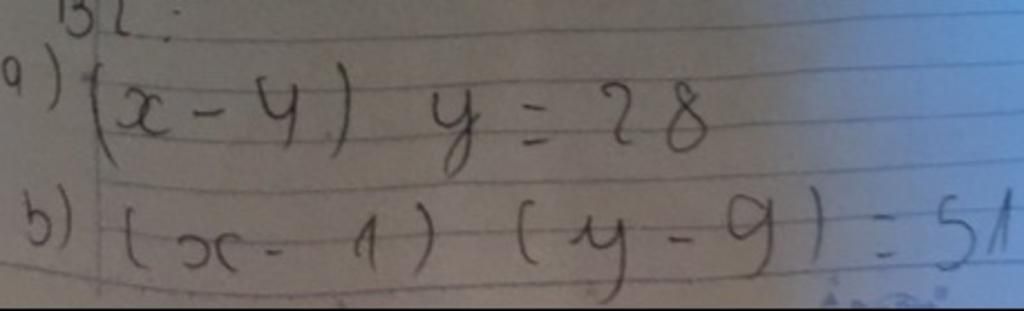 B2:
a) (x - 4) y = 28
b) (x - 1) (y - 9) = 51